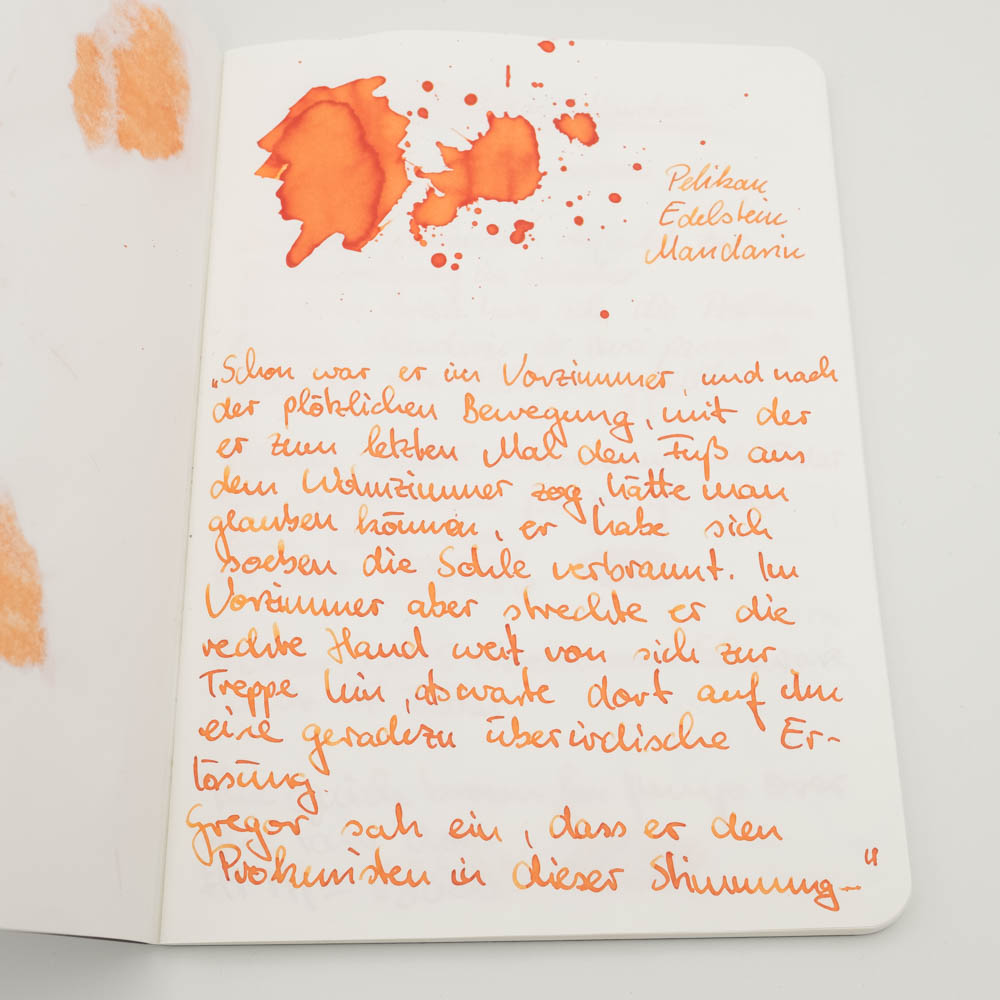 Pelikan
Edelstein
Mandarin
„Schon war er im Vorzimmer und nach
der plötzlichen Bewegung, mit der
er zum letzten Mal den Fuß aus
dem Wohnzimmer zog, hätte man
glauben können, er habe sich
soeben die Sohle verbrannt. Im
Vorzimmer aber streckte er die
rechte Hand weit von sich zur
Treppe hin, als warte dort auf ihn
eine geradezu überirdische Er-
lösung.
Gregor sah ein, dass er den
Prokuristen in dieser Stimmung–"